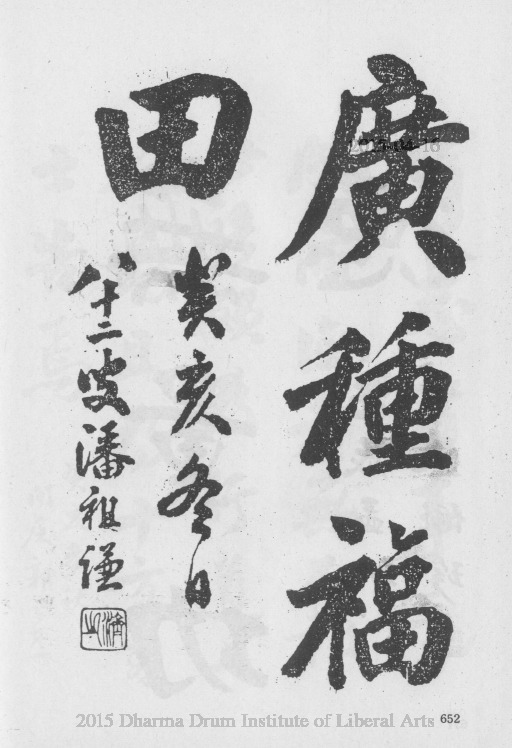 廣種福
田
癸亥冬日
八十二叟潘祖謙
2015 Dharma Drum Institute of Liberal Arts 652